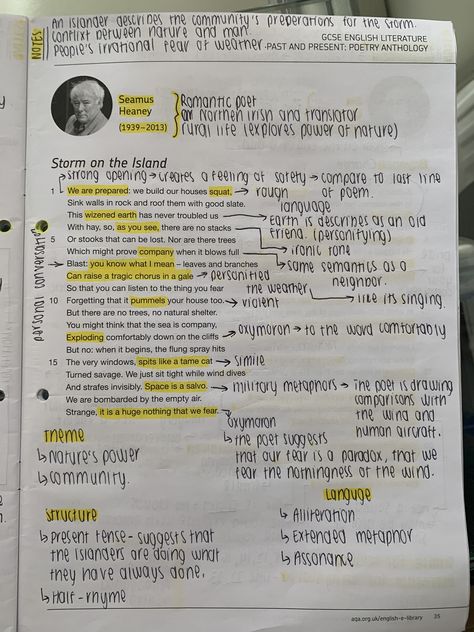 An islander describes the community's preperations for the storm.
Conflixt between nature and man.
NOTES
People's irrational fear of weather.
GCSE ENGLISH LITERATURE
PAST AND PRESENT: POETRY ANTHOLOGY
Seamus
Heaney
(1939–2013)
Romantic poet
Northen irish and translator
rural life (explores power of nature)
Storm on the Island
strong opening → creates a feeling of safety → compare to last line
of poem.
1 We are prepared: we build our houses squat, → rough
language
Sink walls in rock and roof them with good slate.
This wizened earth has never troubled us → Earth is describes as an old
friend. (personifying)
With hay, so, as you see, there are no stacks → ironic tone
5 Or stooks that can be lost. Nor are there trees
Which might prove company when it blows full → same semantics as a
neighbor.
Blast: you know what I mean – leaves and branches
Can raise a tragic chorus in a gale → personified
the weather → like its singing.
So that you can listen to the thing you fear
10 Forgetting that it pummels your house too. → violent
But there are no trees, no natural shelter.
You might think that the sea is company,
Exploding comfortably down on the cliffs → oxymoron → to the word comfortably
But no: when it begins, the flung spray hits
15 The very windows, spits like a tame cat → simile
Turned savage. We just sit tight while wind dives
And strafes invisibly. Space is a salvo. → military metaphors → The poet is drawing
comparisons with
the wind and
human aircraft.
We are bombarded by the empty air.
Strange, it is a huge nothing that we fear. → oxymoron
personal conversation
↳ the poet suggests
that our fear is a paradox, that we
fear the nothingness of the wind.
Theme
↳ Nature's power
↳ Community.
Structure
↳ Present tense - suggests that
the islanders are doing what
they have always done.
↳ Half-rhyme
Languge
↳ Alliteration
↳ Extended metaphor
↳ Assonance
aqa.org.uk/english-e-library 35